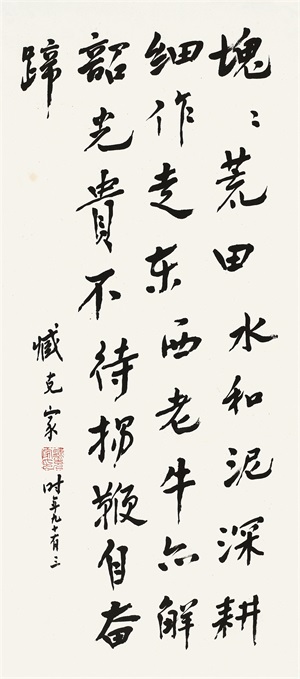 塊〻荒田水和泥深耕
细作走东西老牛亦解
韶光貴不待扬鞭自奋
蹄
臧克家
时年九十有三